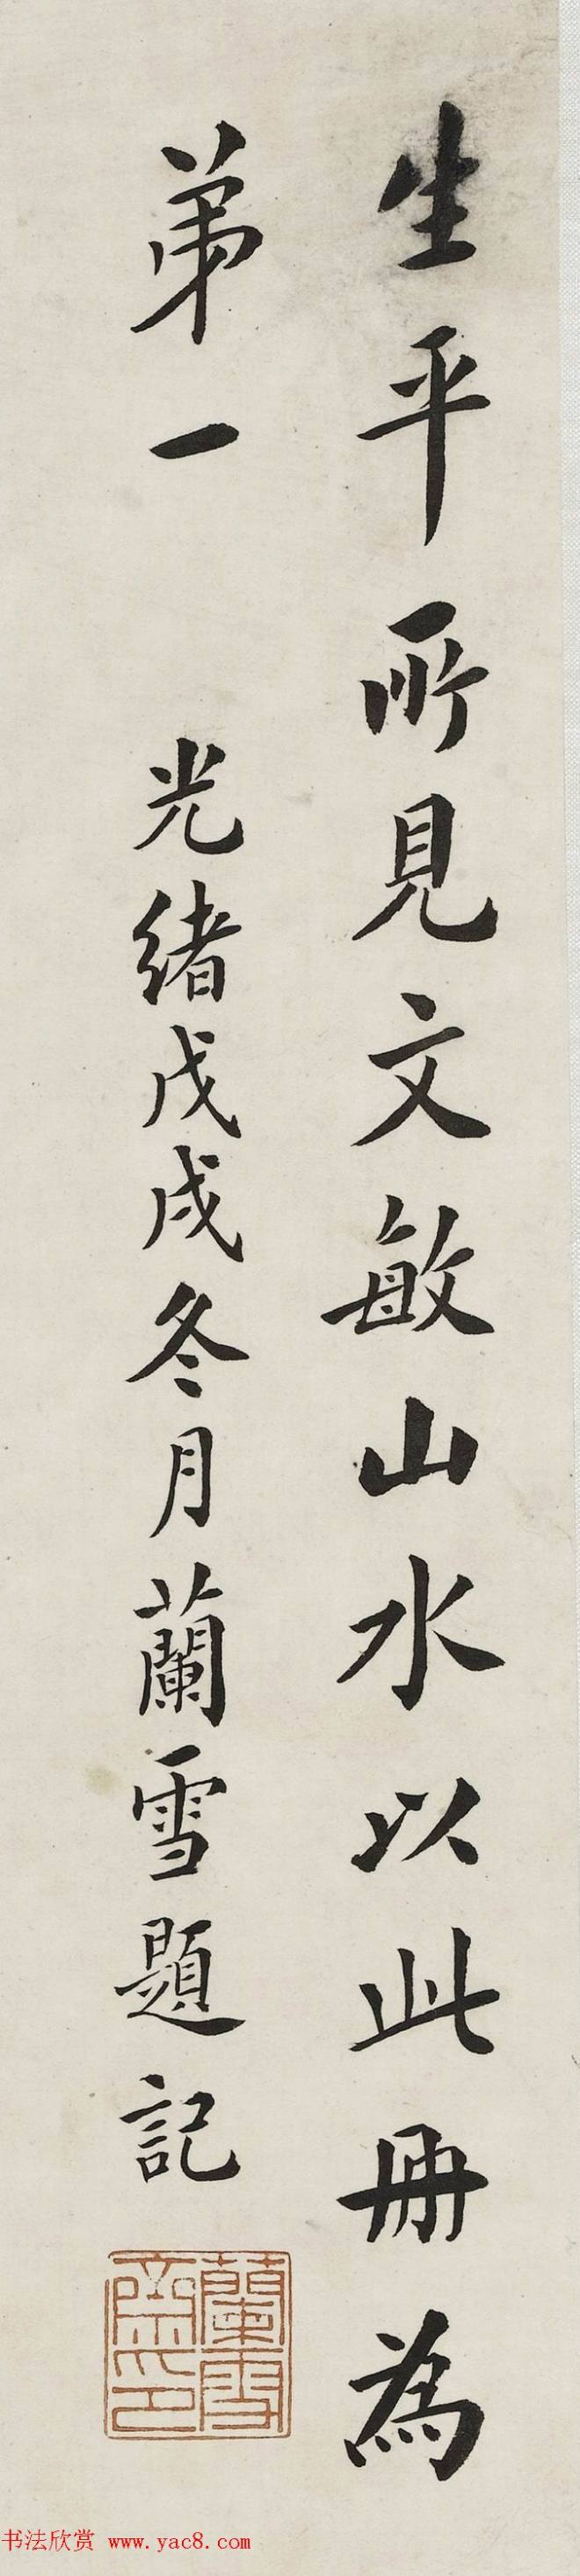 生平所見文敏山水以此冊為
弟一
光緒戊戌冬月蘭雪題記
蘭雪齋印
书法欣赏 www.yac8.com